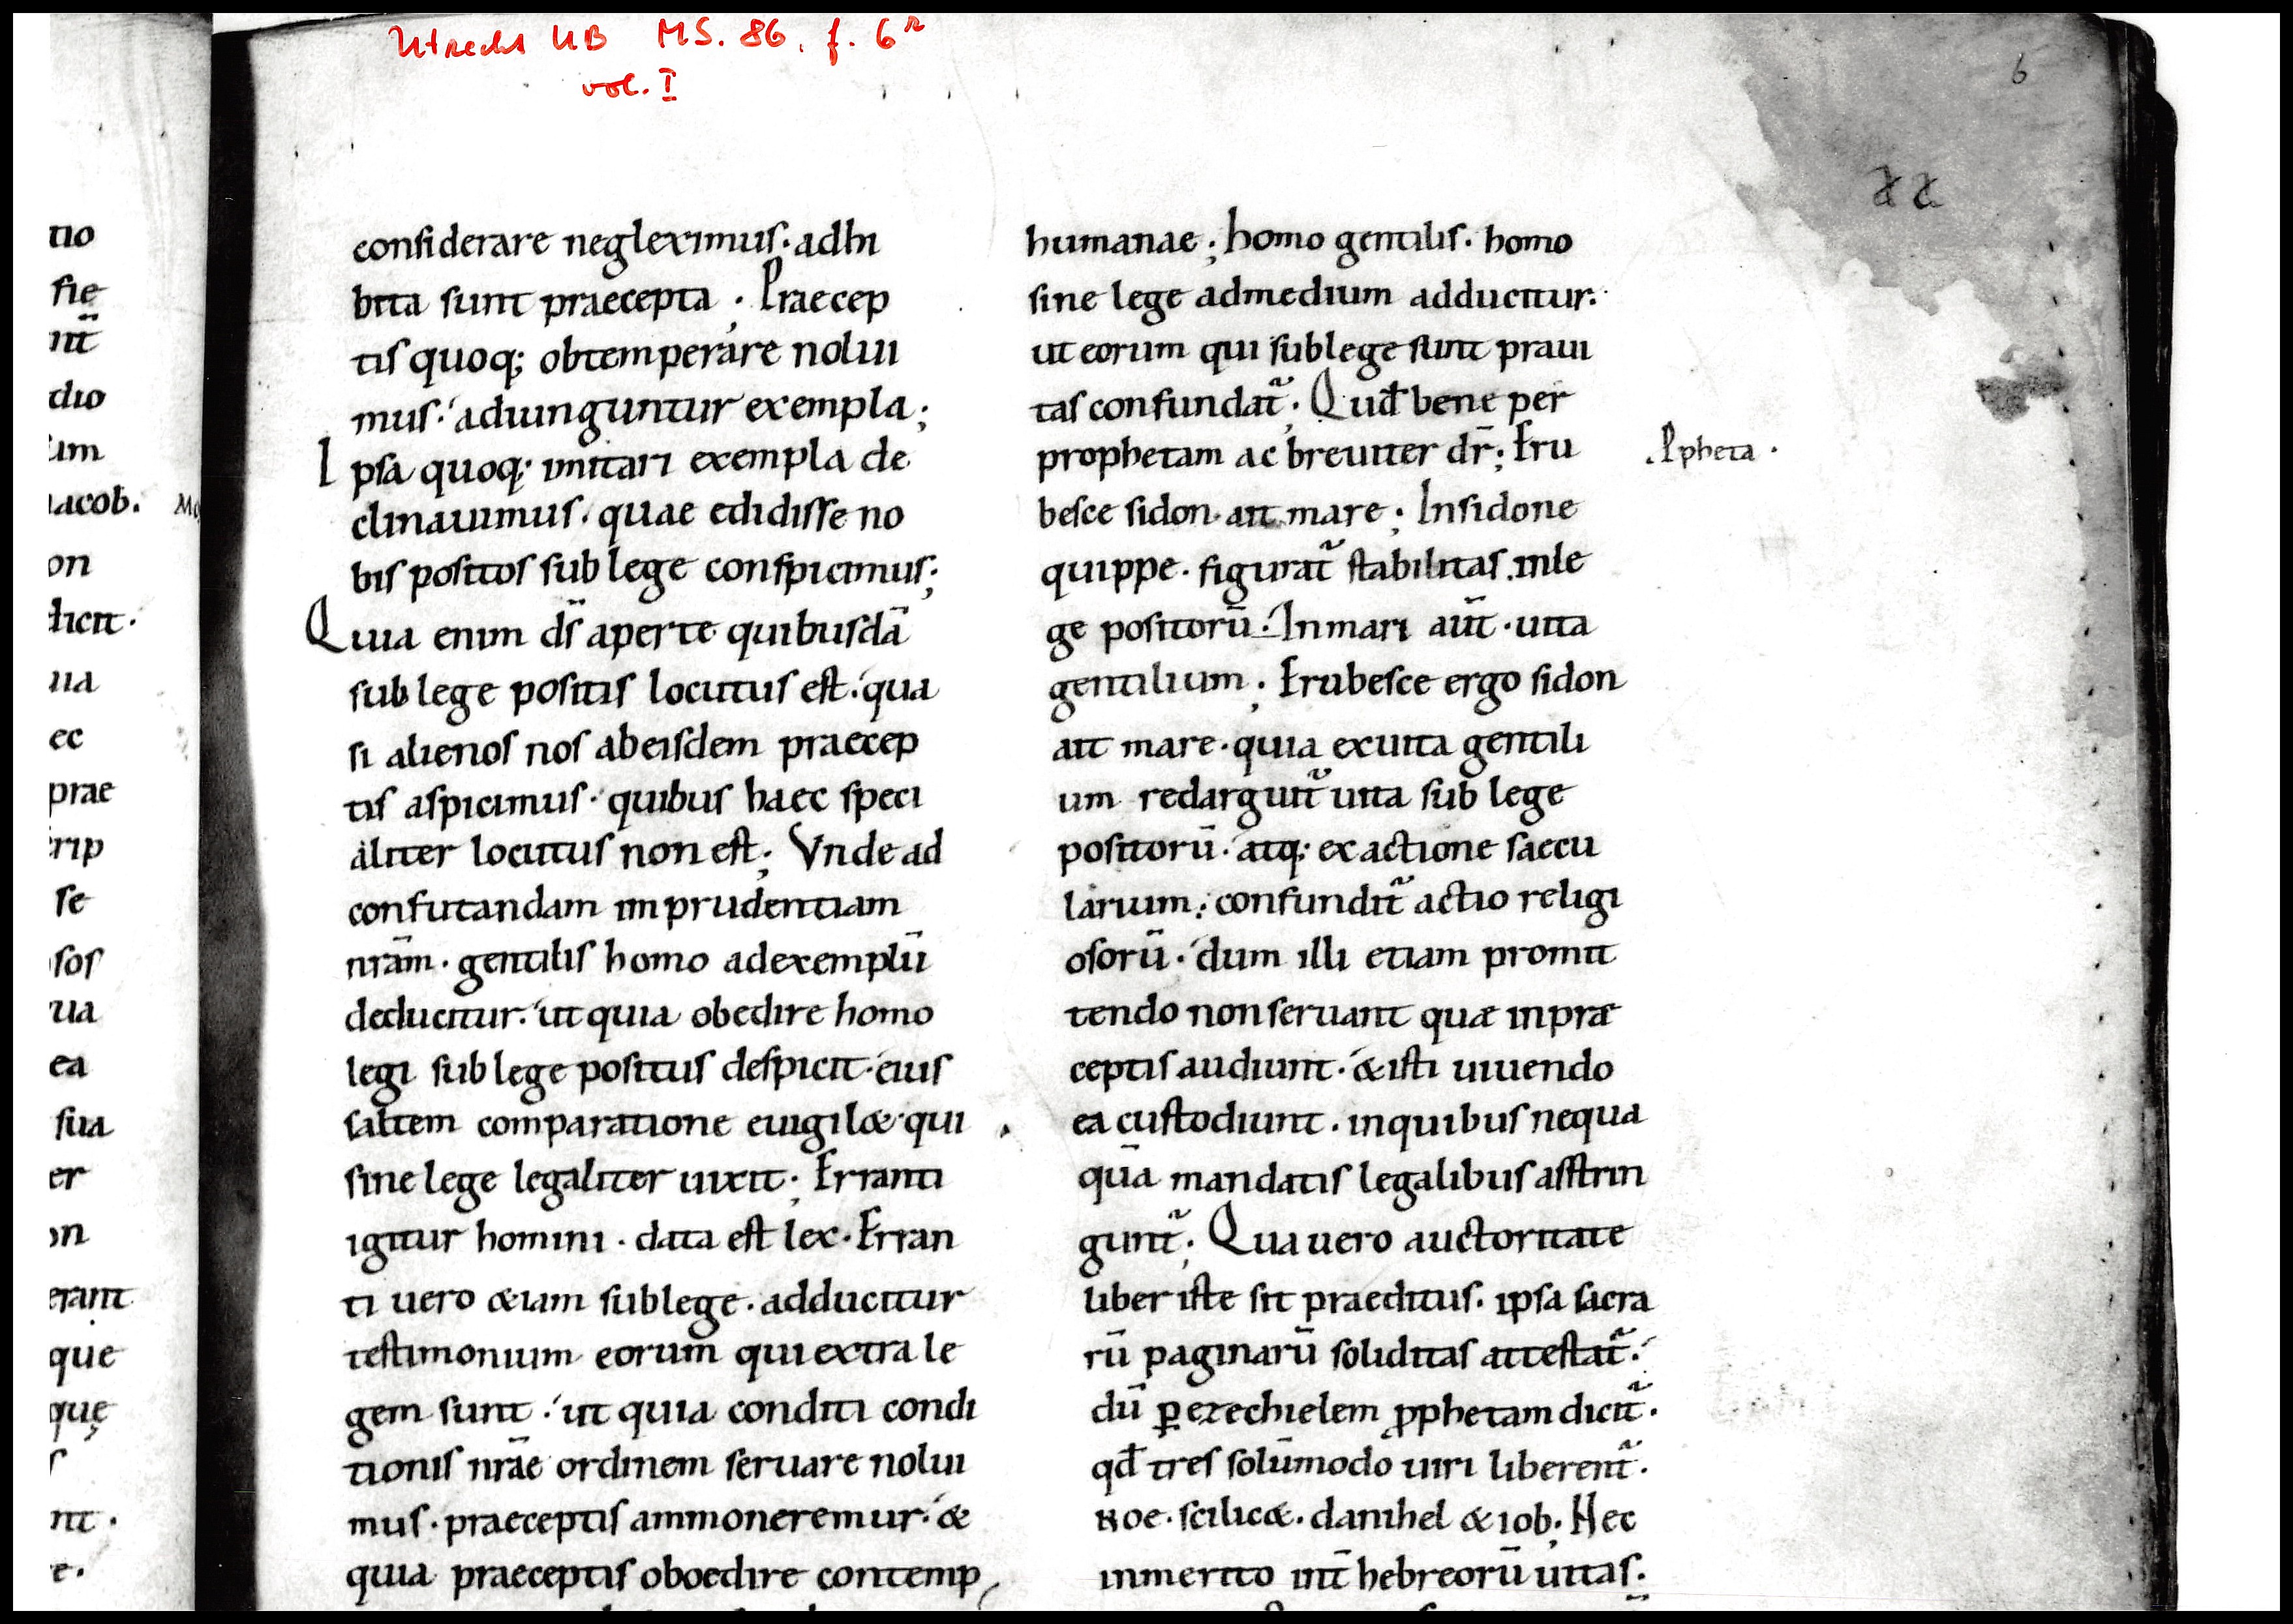 Utrecht UB MS. 86, f. 6r
vol. I
6
tio
fie
nt̄
dio
um
iacob.
on
dicit.
ua
ec
prae
rip
se
sos
ua
ea
sua
er
on
erant
que
quę
s
nt.
e.
considerare negleximus. adhi
bita sunt praecepta; Praecep
tis quoq; obtemperare nolui
mus. adiunguntur exempla;
Ipsa quoq; imitari exempla de
clinauimus. quae edidisse no
bis positos sub lege conspicimus;
Quia enim d̄s aperte quibusdā
sub lege positis locutus est. qua
si alienos nos abeisdem praecep
tis aspicimus. quibus haec speci
aliter locutus non est; Vnde ad
confutandam imprudentiam
nrām. gentilis homo adexemplū
deducitur. ut quia obedire homo
legi sub lege positus despicit. eius
saltem comparatione euigil&. qui
sine lege legaliter uixit; Erranti
igitur homini. data est lex. Erran
ti uero &iam sublege. adducitur
testimonium eorum qui extra le
gem sunt. ut quia conditi condi
tionis nrāe ordinem seruare nolui
mus. praeceptis ammoneremur. &
quia praeceptis oboedire contemp
humanae; homo gentilis. homo
sine lege admedium adducitur.
ut eorum qui sublege sunt praui
tas confundat̃; Qud̄ bene per
prophetam ac breuiter dr̄; Eru
besce sidon. ait mare; Insidone
quippe. figurat̃ stabilitas. inle
ge positorū. Inmari aūt. uita
gentilium; Erubesce ergo sidon
ait mare. quia exuita gentili
um redarguit̃ uita sub lege
positorū. atq; ex actione saecu
larium. confundit̃ actio religi
osorū. dum illi etiam promit
tendo non seruant quæ inpræ
ceptis audiunt. & isti uiuendo
ea custodiunt. inquibus nequa
quā mandatis legalibus asstrin
gunt̃; Qua uero auctoritate
liber iste sit praeditus. ipsa sacra
rū paginarū soliditas attestat̃.
dū ꝑ ezechielem ꝓphetam dicit̃.
qd̄ tres solūmodo uiri liberent̃.
Noe. scilic&. danihel & iob; Nec
inmerito int̄ hebreorū uitas.
.Ppheta.